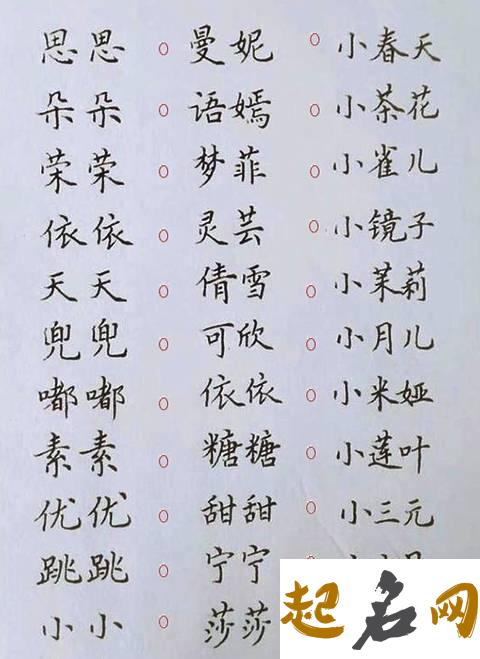 思思 曼妮 小春天
朵朵 语嫣 小茶花
荣荣 梦菲 小雀儿
依依 灵芸 小镜子
天天 倩雪 小茉莉
兜兜 可欣 小月儿
嘟嘟 依依 小米娅
素素 糖糖 小莲叶
优优 甜甜 小三元
跳跳 宁宁
小小 莎莎
起名网